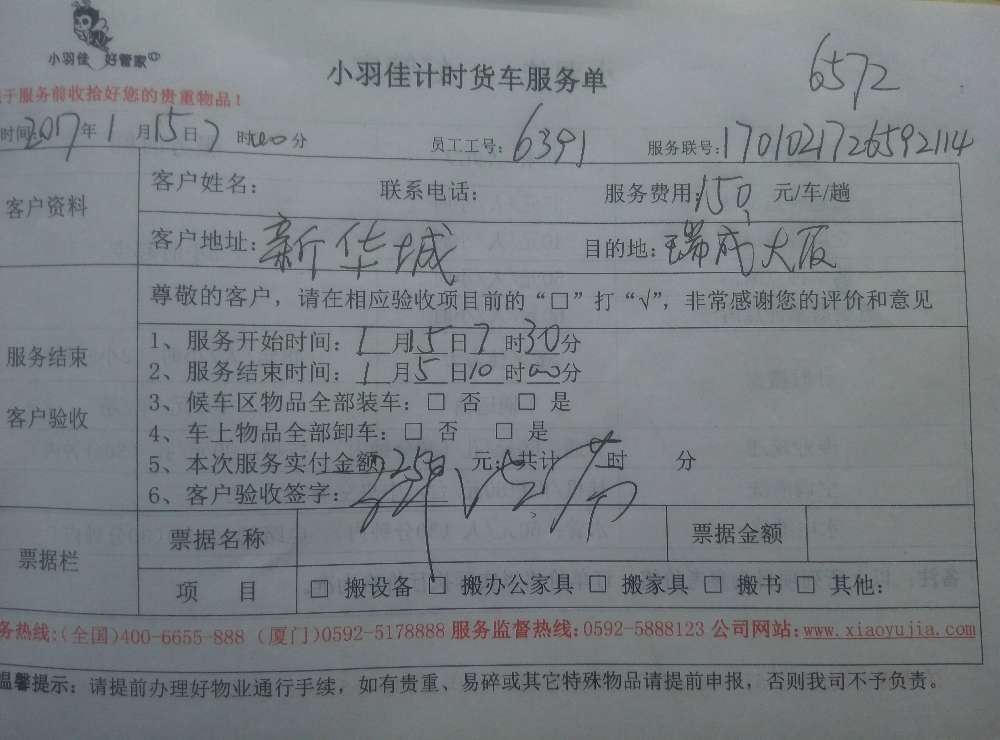 小羽佳 好管家
小羽佳计时货车服务单
6572
于服务前收拾好您的贵重物品！
时间:2017年1月15日7时00分 员工工号:6391 服务联号:1701021726592114
客户资料
客户姓名: 联系电话: 服务费用:150元/车/趟
客户地址:新华城 目的地:瑞成大厦
服务结束
客户验收
尊敬的客户，请在相应验收项目前的“□”打“√”，非常感谢您的评价和意见
1、服务开始时间:1月15日7时30分
2、服务结束时间:1月5日10时00分
3、候车区物品全部装车:□ 否 □ 是
4、车上物品全部卸车:□ 否 □ 是
5、本次服务实付金额 元;共计 时 分
6、客户验收签字:
票据栏
票据名称 票据金额
项 目 □ 搬设备 □ 搬办公家具 □ 搬家具 □ 搬书 □ 其他:
务热线:(全国)400-6655-888 (厦门)0592-5178888 服务监督热线:0592-5888123 公司网站:www.xiaoyujia.com
温馨提示: 请提前办理好物业通行手续，如有贵重、易碎或其它特殊物品请提前申报，否则我司不予负责。